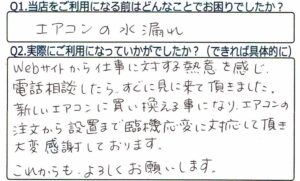 Q1.当店をご利用になる前はどんなことでお困りでしたか？
エアコンの水漏れ
Q2.実際にご利用になっていかがでしたか？（できれば具体的に）
Webサイトから仕事に対する熱意を感じ、
電話相談したら、すぐに見に来て頂きました。
新しいエアコンに買い換える事になり、エアコンの
注文から設置まで臨機応変に対応して頂き
大変感謝しております。
これからも、よろしくお願いします。